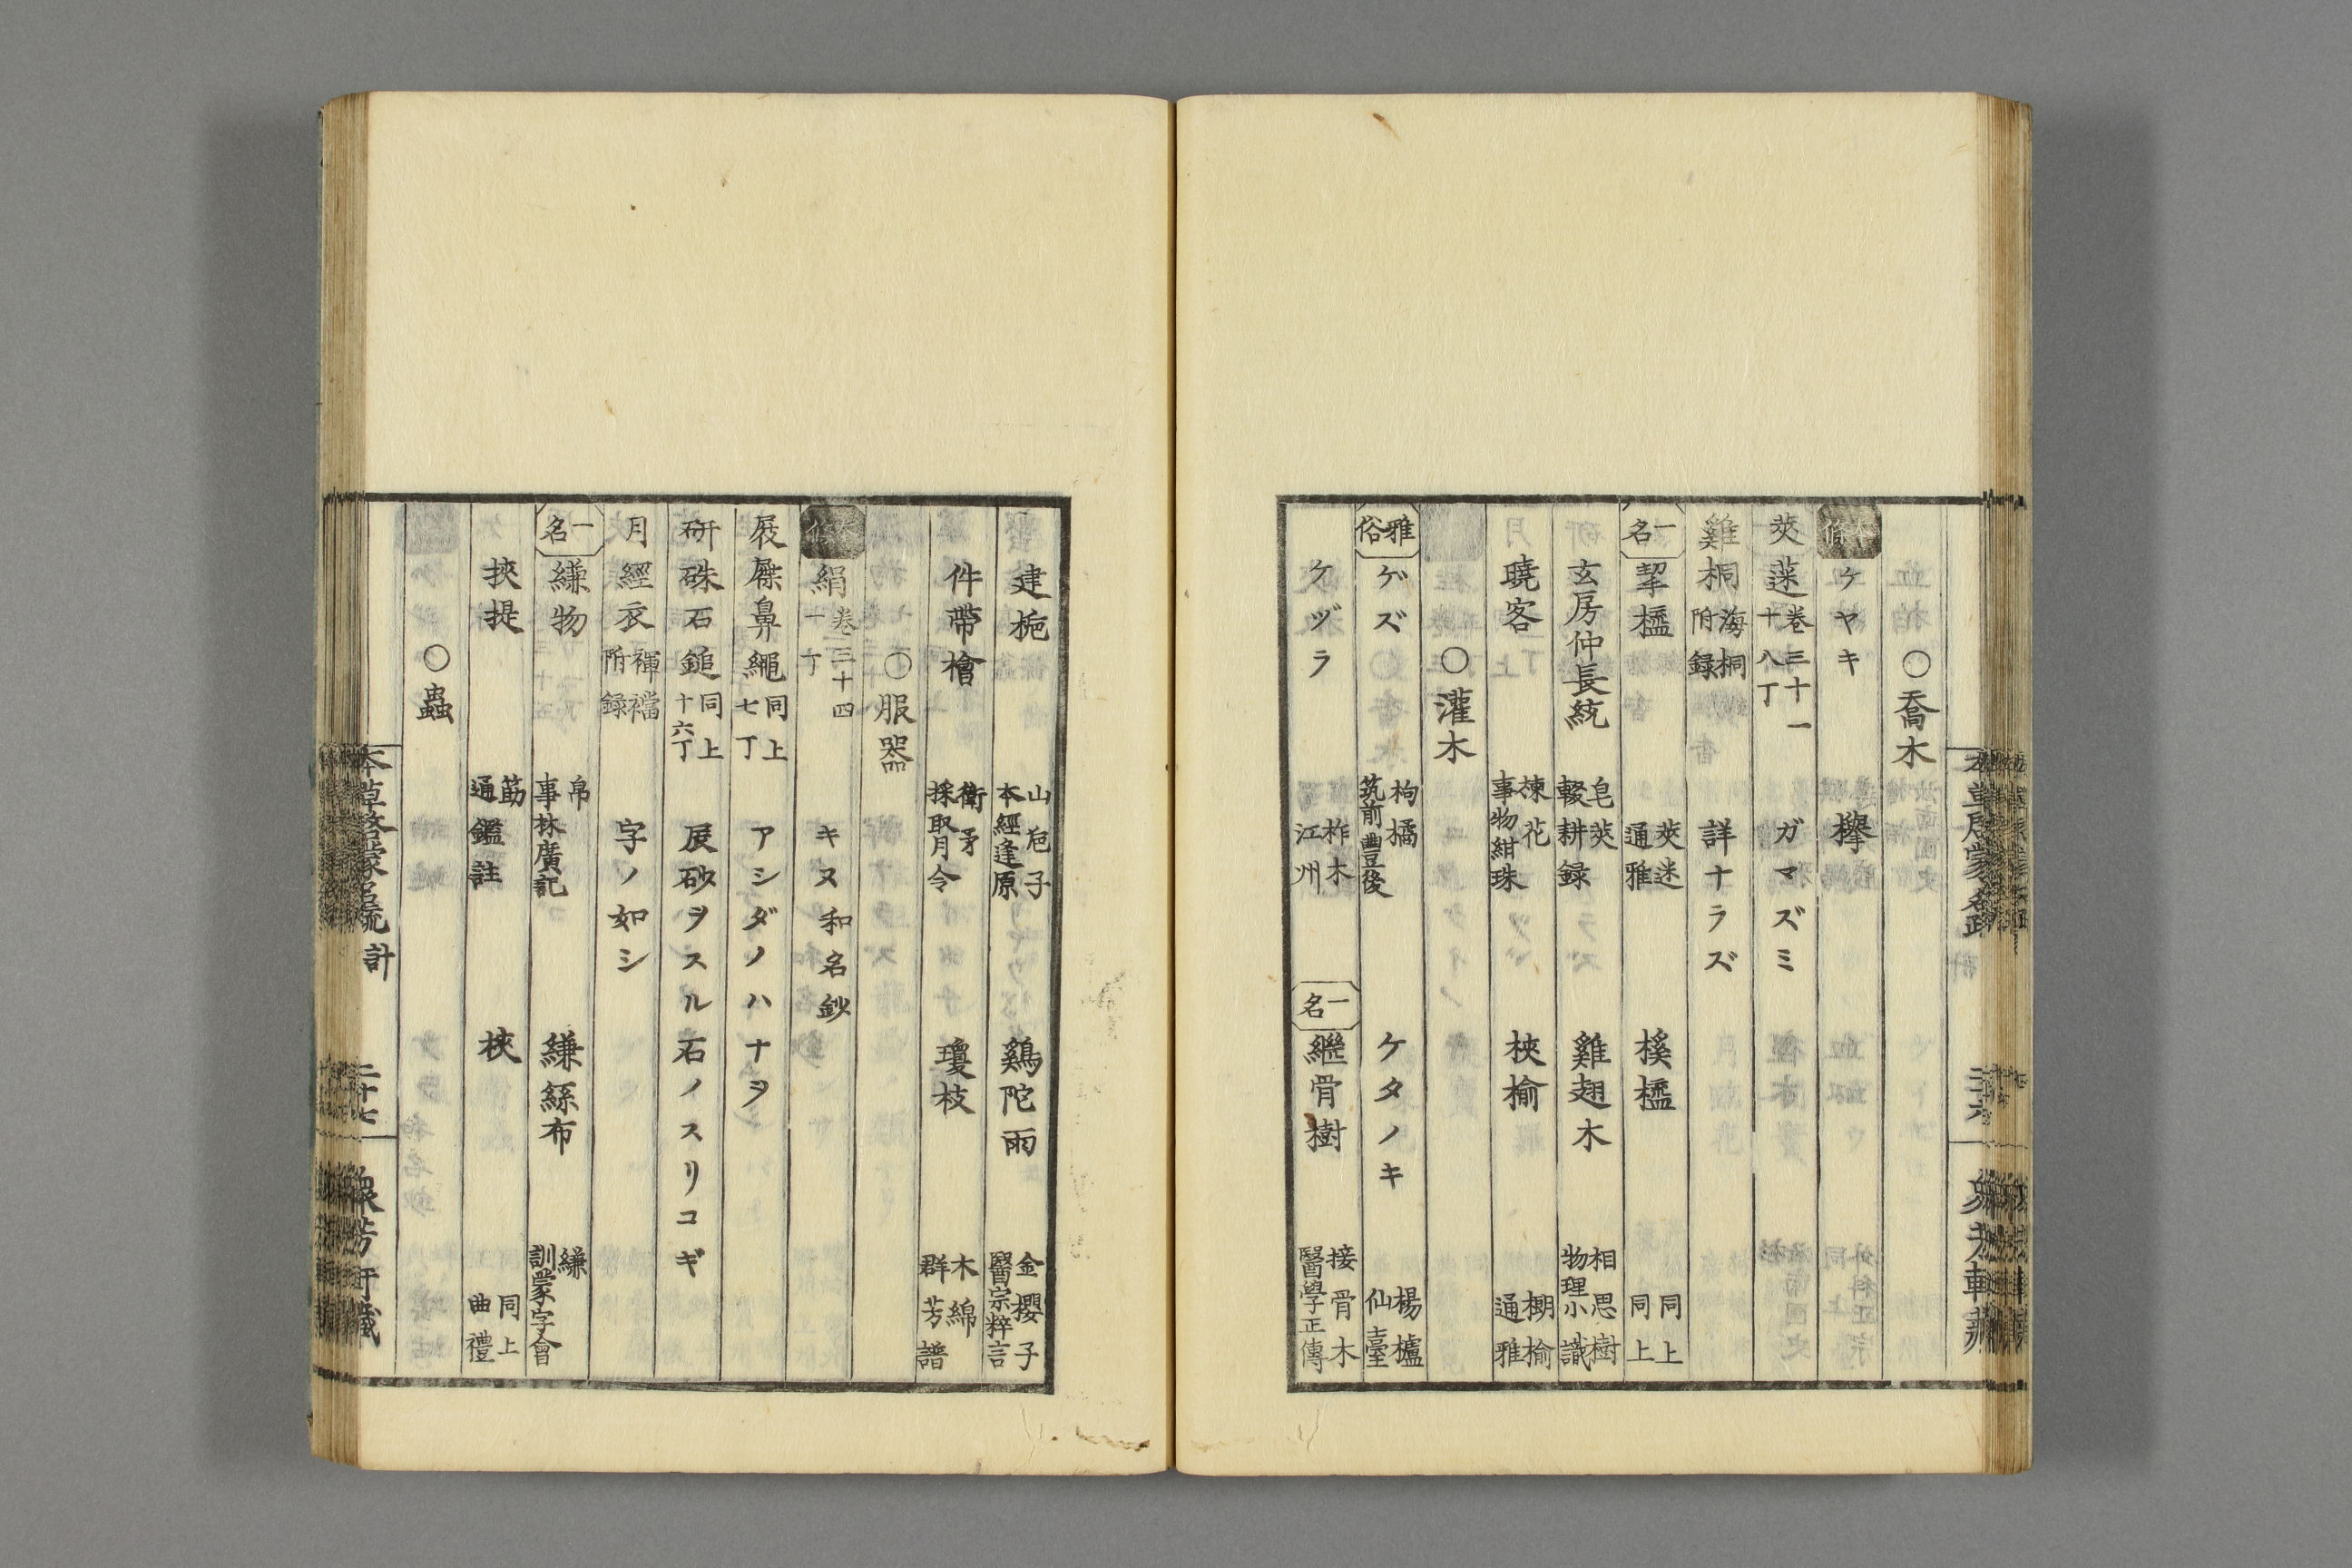 〇喬木
本條 ケヤキ 欅
莢蒾 卷三十一 十八丁 ガマズミ
雞桐 海桐附録 詳ナラズ
一名 挈橀 莢迷 通雅 榽橀 同上 同上
玄房仲長統 皂莢 輟耕録 雞翅木 相思樹 物理小識
曉客 楝花 事物紺珠 梜榆 棚榆 通雅
〇灌木
雅俗 ゲズ 枸橘 筑前豊後 ケタノキ 楊櫨 仙臺
ケヅラ 柞木 江州 一名 繼骨樹 接骨木 醫學正傳
建桅 山巵子 本經逢原 鷄陀雨 金櫻子 醫宗粹言
件帶檜 衛矛 採取月令 瓊枝 木綿 群芳譜
〇服器
絹 卷三十四 十一丁 キヌ 和名鈔
屐屧鼻繩 同上 七丁 アシダノハナヲ
研硃石鎚 同上 十六丁 辰砂ヲスル石ノスリコギ
月經衣 褌襠附録 字ノ如シ
一名 縑物 帛 事林廣記 縑絲布 縑 訓蒙字會
挾提 筯 通鑑註 梜 同上 曲禮
〇蟲
本草啓蒙名疏 計 二十七 衆芳軒藏